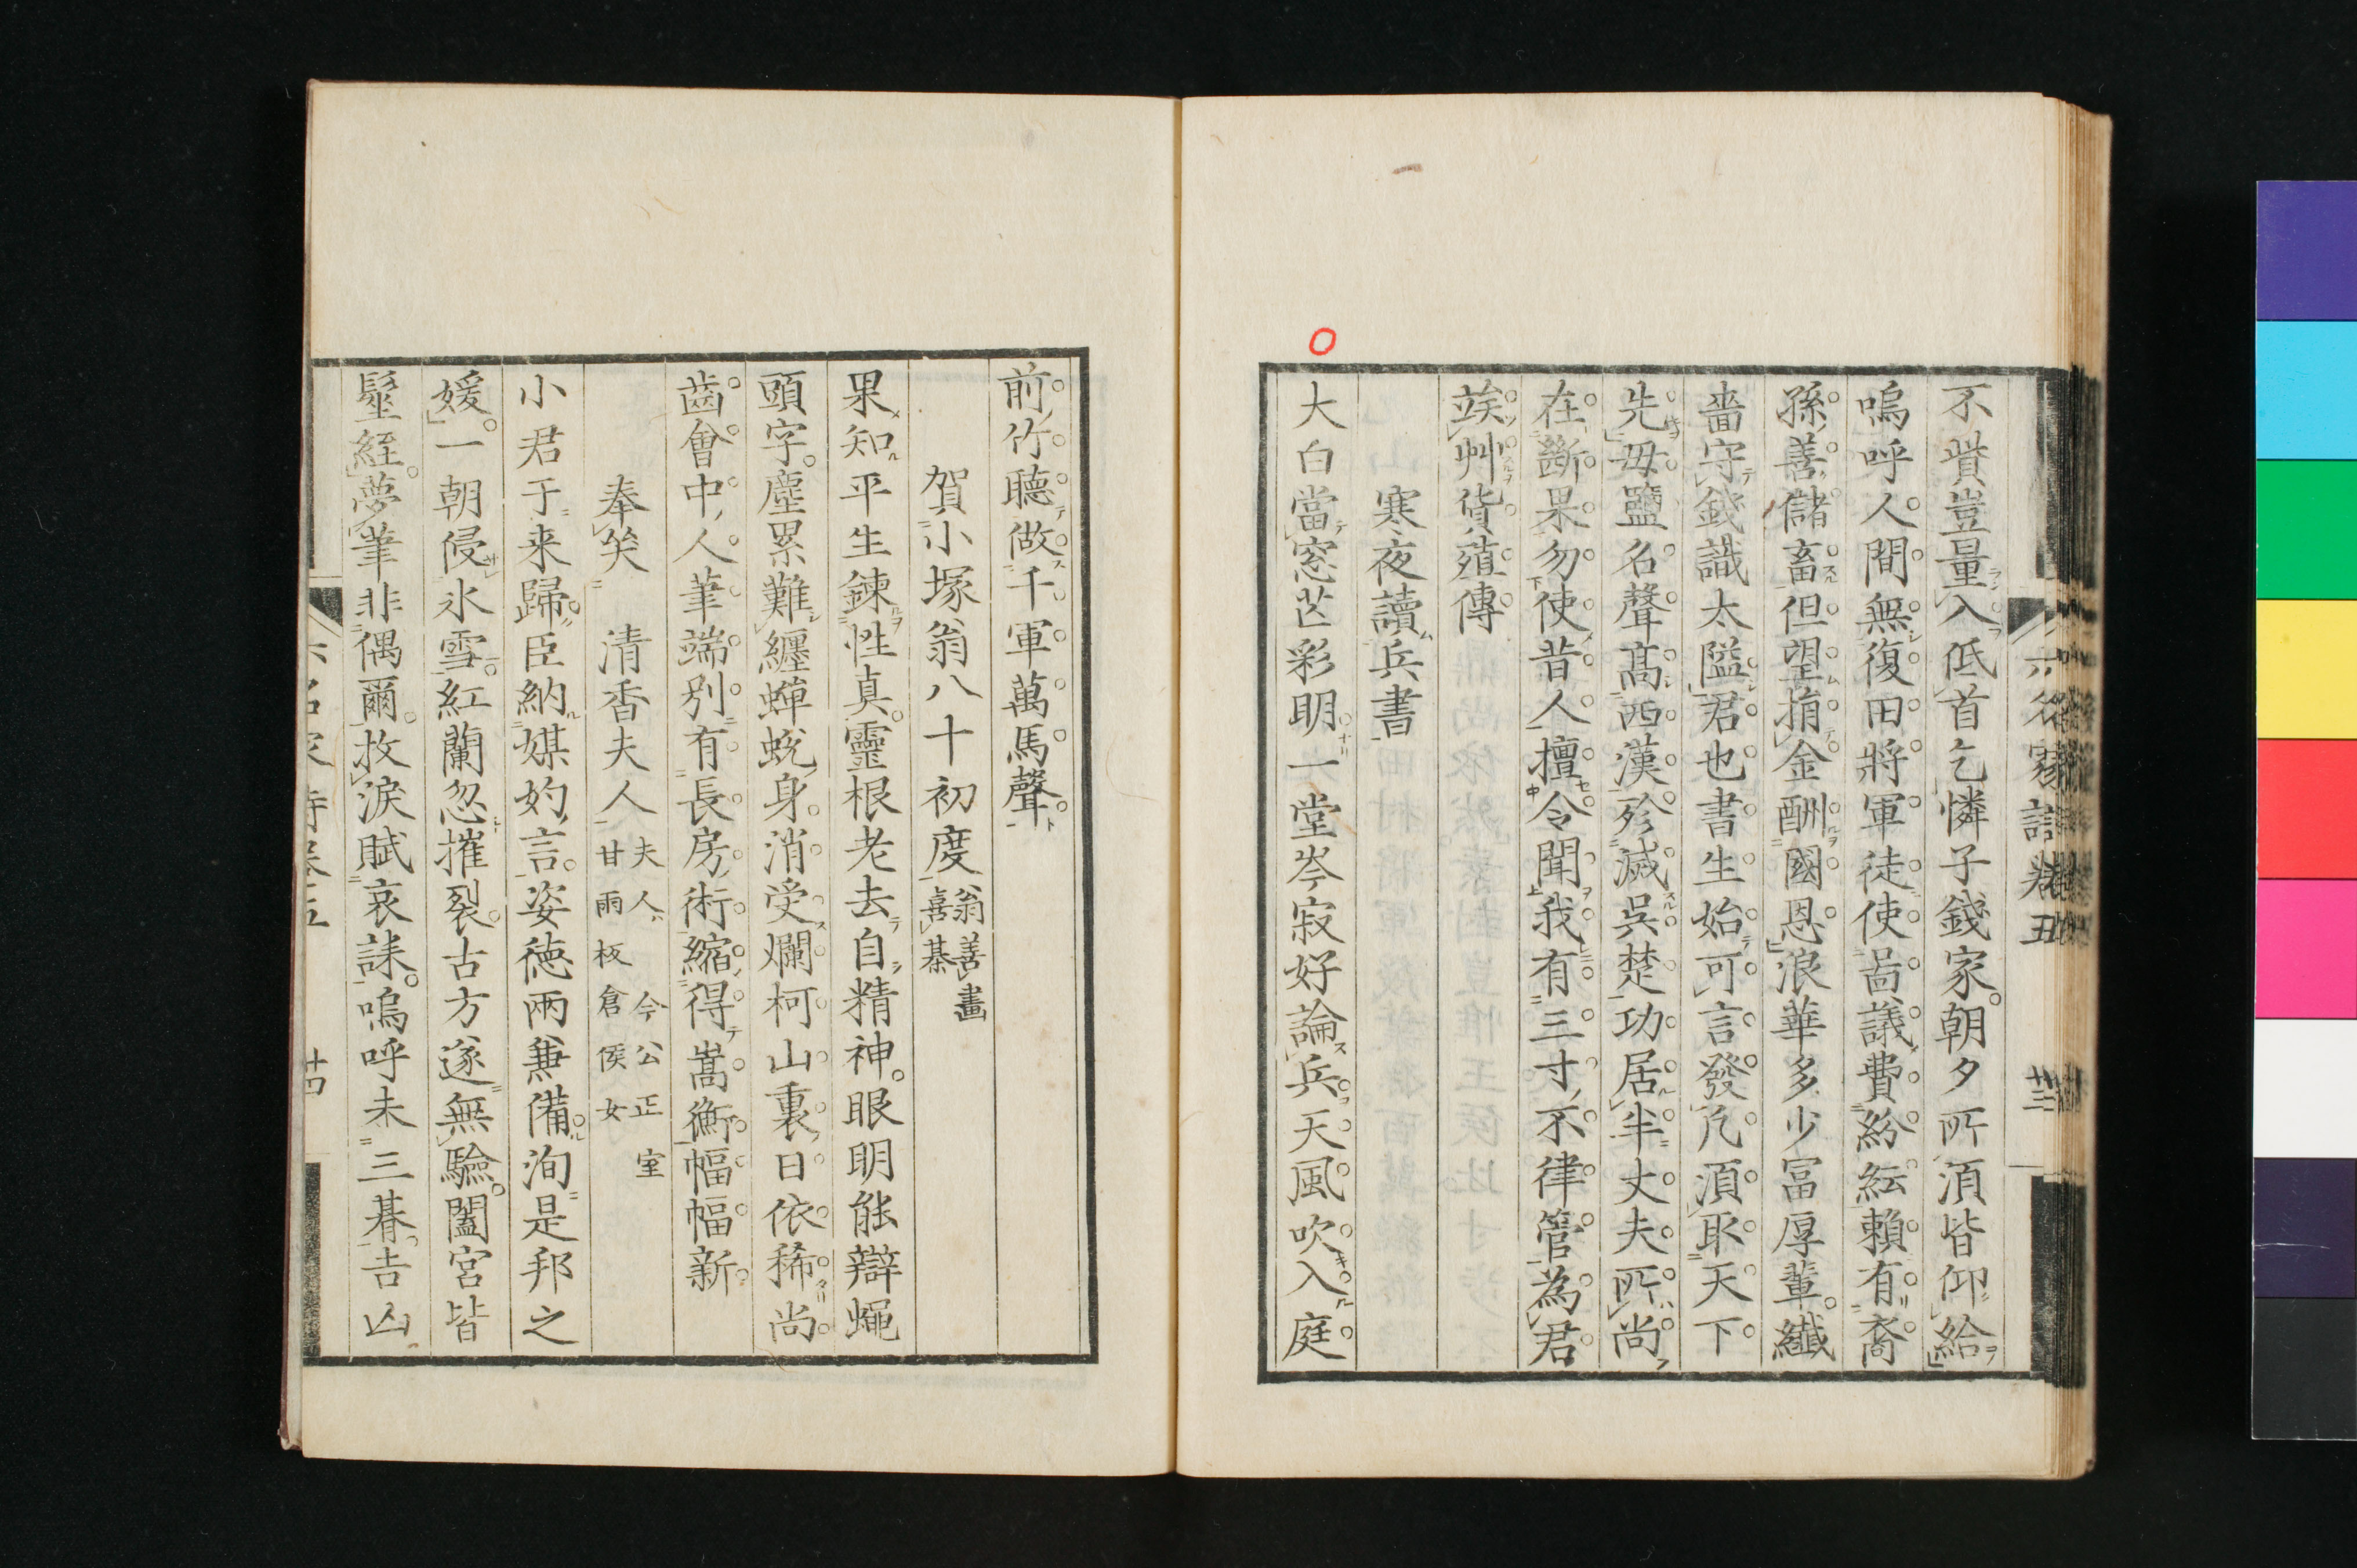 不貲豈量入低首乞憐子錢家朝夕所須皆仰給
嗚呼人間無復田將軍徒使啚議費紛紜賴有裔
孫善儲畜但望捐金酬國恩浪華多少冨厚輩纎
嗇守錢識太隘君也書生始可言發凡須取天下
先毋盬名聲高西漢殄滅吳楚功居半丈夫所尚
在斷果勿使昔人擅令聞我有三寸不律管為君
竢艸貨殖傳
寒夜讀兵書
大白當窓芒彩明一堂岑寂好論兵天風吹入庭
六名家詩鈔五
廿三
前竹聽做千軍萬馬聲
賀小塚翁八十初度翁善畫喜棊
果知平生鍊性真靈根老去自精神眼明能辯蠅
頭字塵累難纏蟬蛻身消受爛柯山裏日依稀尚
齒會中人筆端別有長房術縮得嵩衡幅幅新
奉矣　清香夫人夫人今公正室甘雨板倉侯女
小君于来歸臣納媒妁言姿徳兩兼備洵是邦之
媛一朝侵氷雪紅蘭忽摧裂古方遂無驗闔宮皆
髽絰夢筆非偶爾抆淚賦哀誄嗚呼未三朞吉凶
廿四